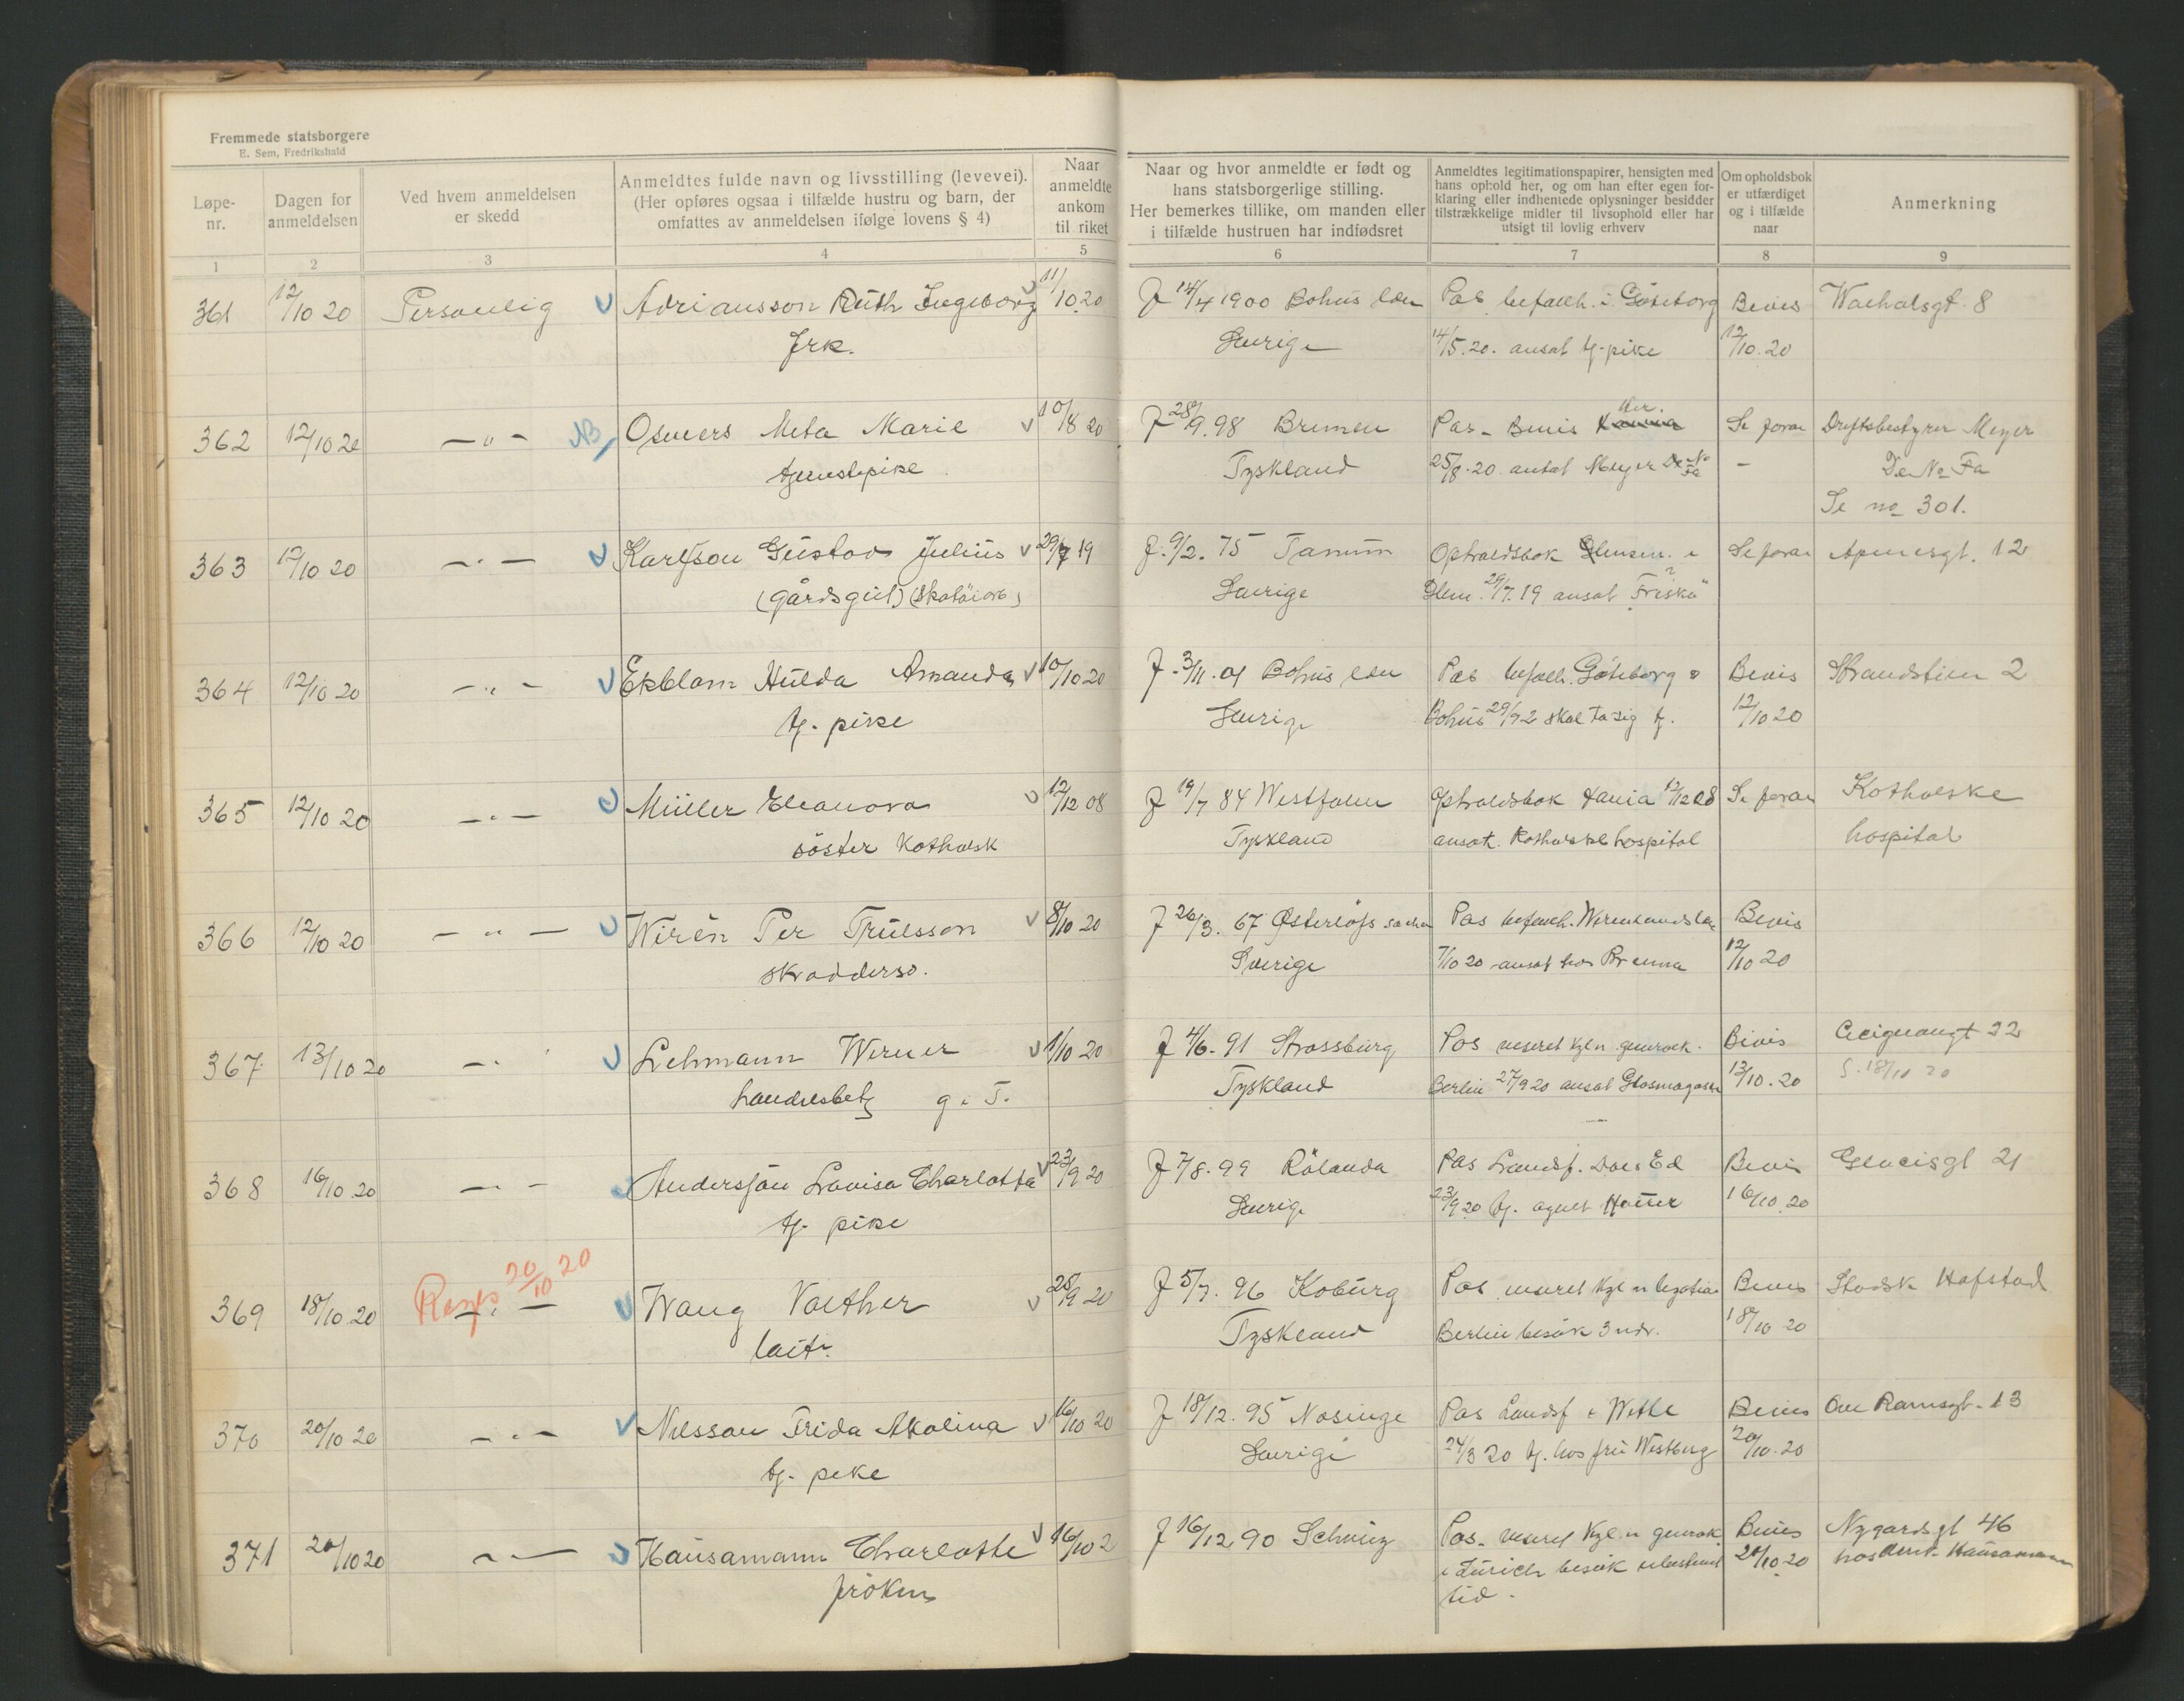 Fremmede statsborgere
E. Sem, Fredrikshald
Løpe-nr.
Dagen for anmeldelsen
Ved hvem anmeldelsen er skedd
Anmeldtes fulde navn og livsstilling (levevei).
(Her opføres ogsaa i tilfælde hustru og barn, der
omfattes av anmeldelsen ifølge lovens § 4)
Naar anmeldte ankom til riket
Naar og hvor anmeldte er født og
hans statsborgerlige stilling.
Her bemerkes tillike, om manden eller
i tilfælde hustruen har indfødsret
Anmeldtes legitimationspapirer, hensigten med
hans ophold her, og om han efter egen for-
klaring eller indhentede oplysninger besidder
tilstrækkelige midler til livsophold eller har
utsigt til lovlig erhverv
Om opholdsbok
er utfærdiget
og i tilfælde
naar
Anmerkning
1 2 3 4 5 6 7 8 9
361 12/10 20 Personlig Adriansson Ruth Ingeborg 11/10.20 F 14/4 1900 Bohus len Pas befalh. i Göteborg Bevis
Frk. Sverige 14/5.20. ansat tj. pike 12/10.20
362 12/10 20 — " — NB Osmers Meta Marie 10/8 20 F 28/9.98 Bremen Pas - Bevis Se foran Driftsbestyrer Meyer
tjenestepike Tyskland 25/8.20 antat Meyer De No Fa — De No Fa
Se no 301.
363 12/10 20 — " — Karlsson Gustav Julius 29/7 19 F. 9/2. 75 Tanum Opholdsbok Se foran 12
(gårdsgut) Sverige 29/7.19 ansat
364 12/10 20 — " — Ekblom Hulda Amanda 10/10 20 F. 3/11. 01 Bohus len Pas befalh. Göteborg o Bevis Strandstien 2
tj. pike Sverige Bohus skal ta sig tj. 12/10 20
365 12/10 20 — " — Müller Eleonora 12/12 08 F 19/7 84 Westfalen Opholdsbok 12/12 08 Se foran Katholske
söster Katholsk Tyskland ansat. Katholske hospital hospital
366 12/10 20 — " — Wirén Per Trulsson 8/10 20 F 26/3. 67 Pas befalh. Wermlandslen Bevis
skreddersv. Sverige 7/10 20 ansat hos 12/10 20
367 13/10 20 — " — Lehmann Werner 1/10 20 F 4/6. 91 Strassburg Pas viseret Kgl n Bevis 22
handelsbetj g. T. Tyskland Berlin 27/9 20 ansat Glasmagasin 13/10.20 18/11 20
368 16/10 20 — " — Andersson Lovisa Charlotta 23/9 20 F 7/8. 99 Rölanda Pas Landsf. Dals Ed Bevis Glacisgt 21
tj. pike Sverige 23/9 20 tj. 16/10.20
369 18/10 20 Rejst 20/10 20 — " — Wang Valther 25/9 20 F 5/7. 96 Koburg Pas viseret Kgl n legation Bevis Hafstad
Tyskland Berlin besök 3 mdr. 18/10 20
370 20/10 20 — " — Nilsson Frida Akolina 16/10 20 F 18/12. 95 Nösinge Pas Landsf Bevis Ove Ramsgt. 13
tj. pike Sverige 24/3 20 tj. hos fru Westberg 20/10.20
371 20/10 20 — " — Hausamann Charlotte 16/10 2 F 16/12 90 Schweiz Pas - viseret Kgl. n Bevis Nygardsgt 46
fröken i Zürich besök ubestemt 20/10 20 hos Hausamann
tid.